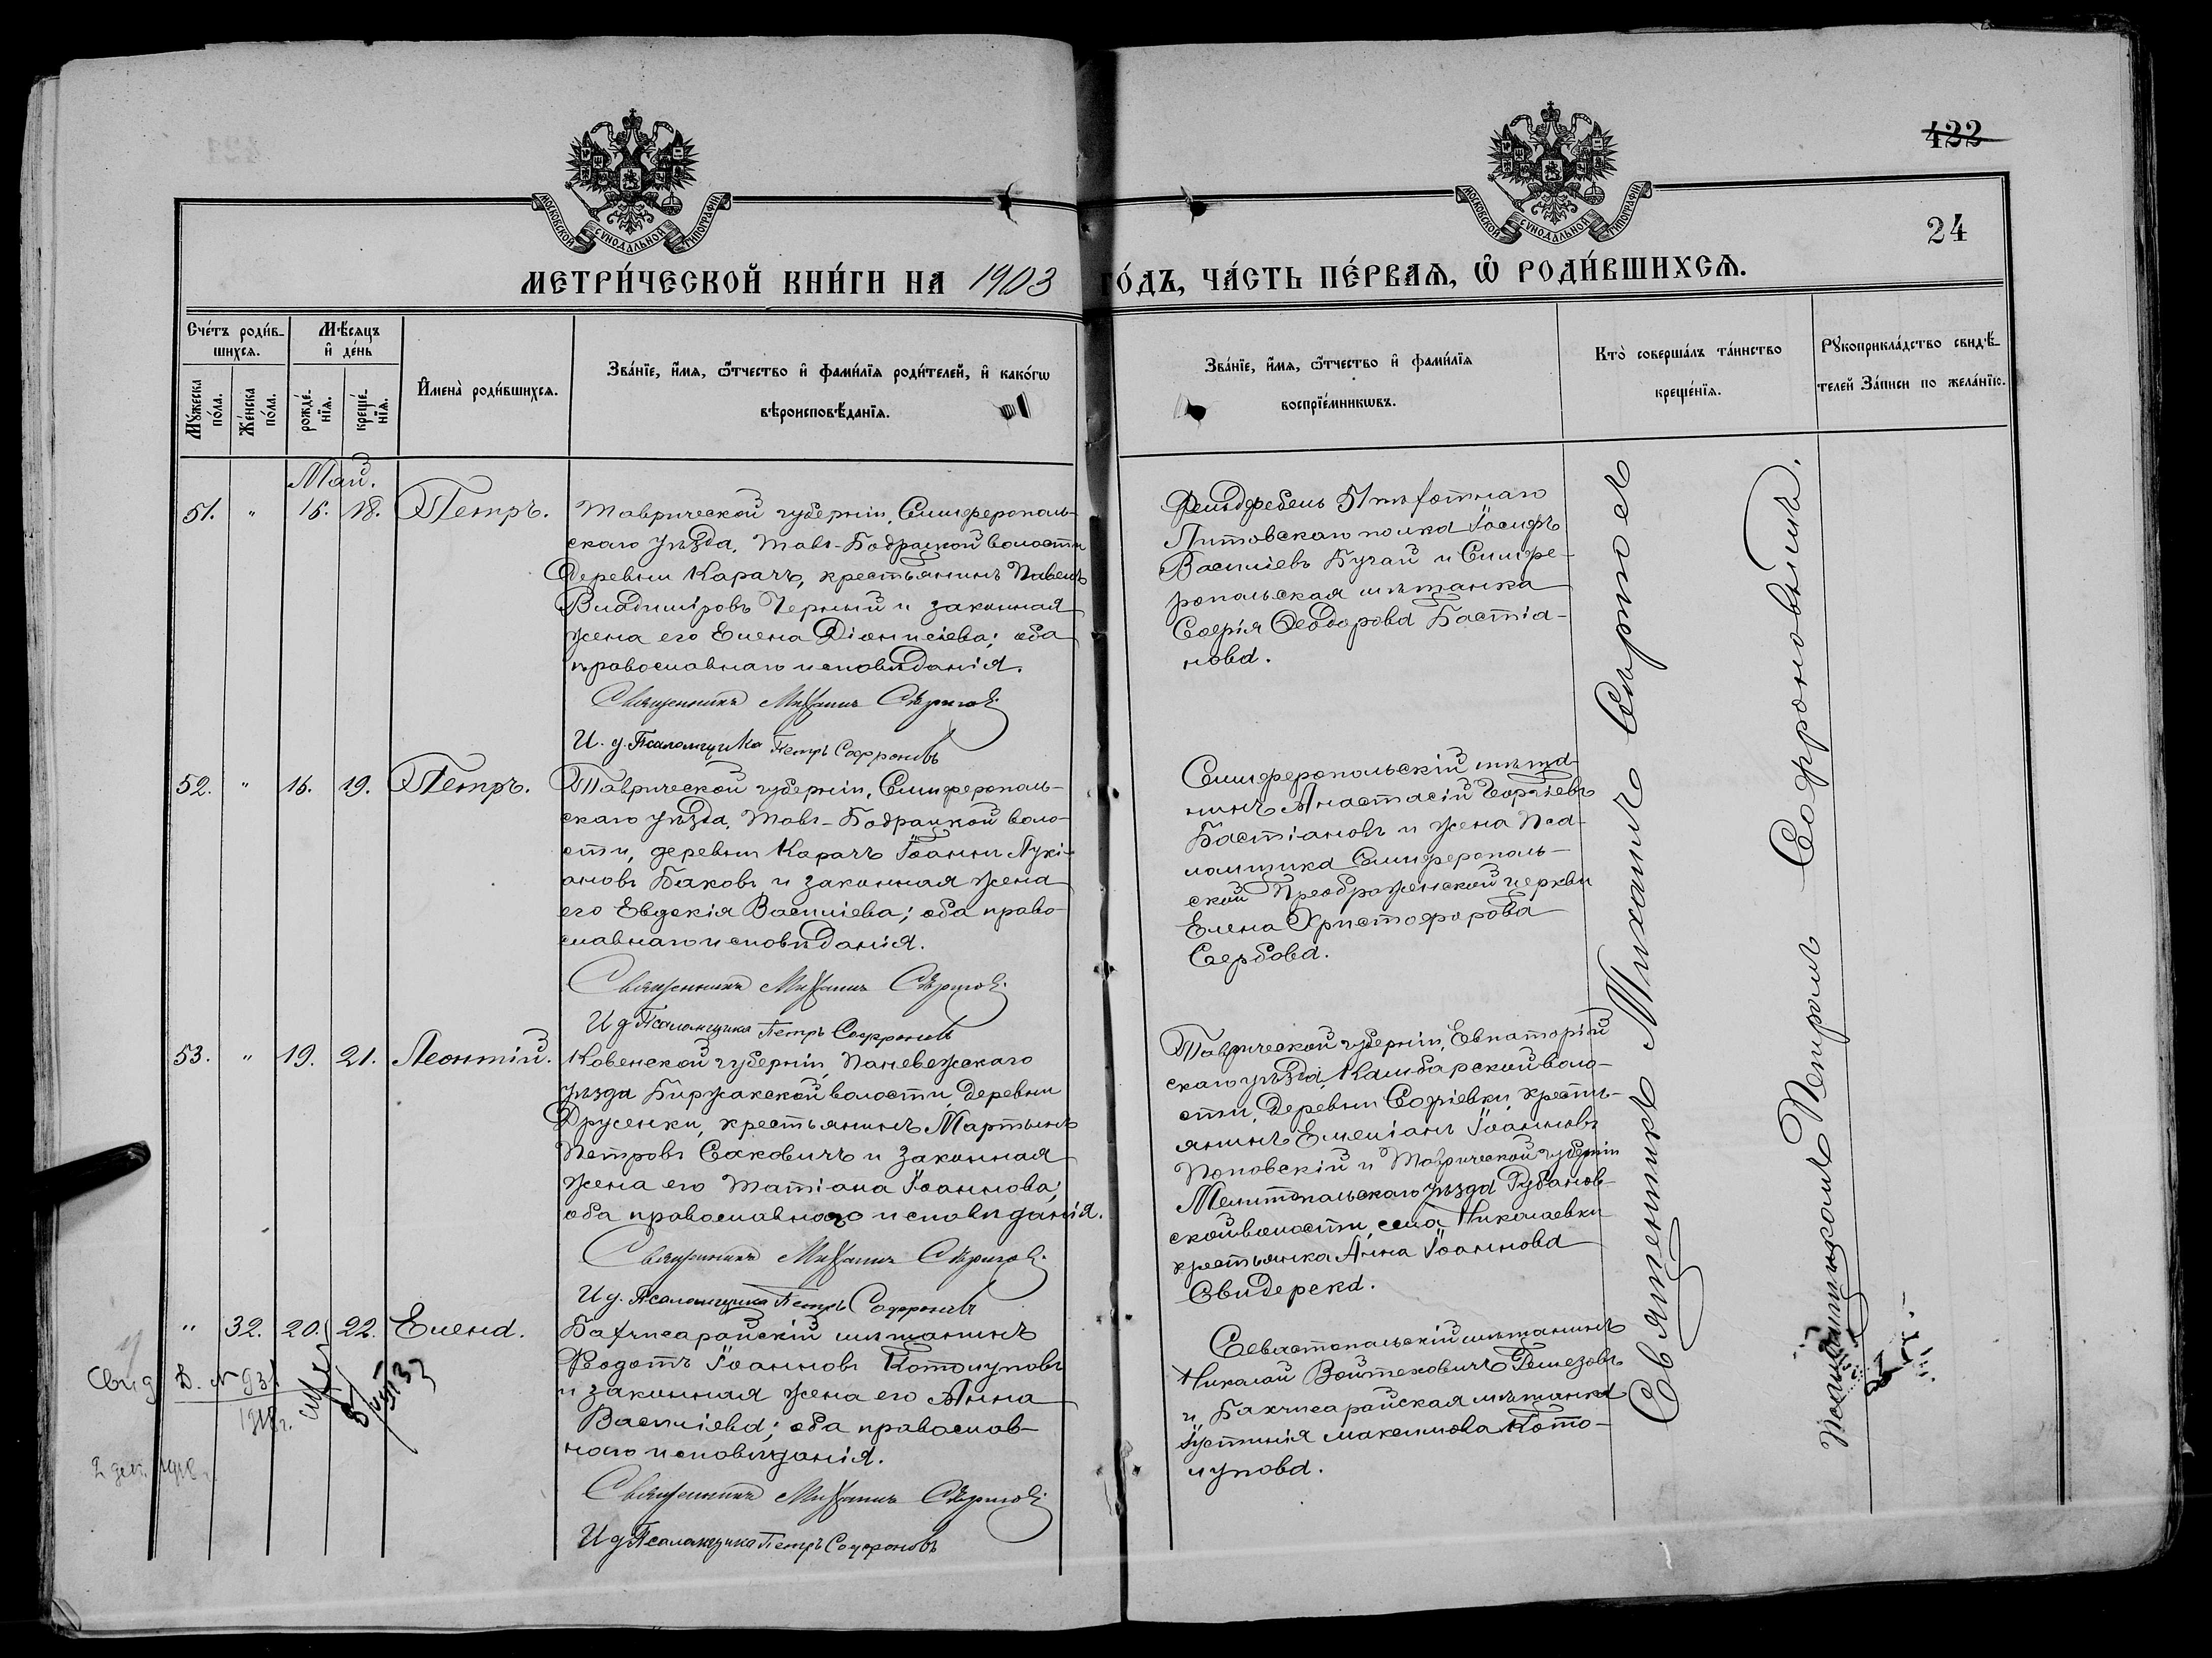 422
24
МОСКОВСКОЙ СѴНОДАЛЬНОЙ ТИПОГРАФІИ
МОСКОВСКОЙ СѴНОДАЛЬНОЙ ТИПОГРАФІИ
МЕТРИ́ЧЕСКОЙ КНИ́ГИ НА 1903 ГО́ДЪ, ЧА́СТЬ ПЕ́РВАЯ, Ѡ҆ РОДИ́ВШИХСЯ.
Сче́тъ роди́в-
шихся.
Мꙋжеска по́ла.
Же́нска по́ла.
Мѣ́сяцъ
и҆ де́нь
рожде́-
нїя.
креще́-
нїя.
И҆мена̀ роди́вшихся.
Зва́нїе, и҆́мя, ѻ҆́тчество и҆ фами́лїя роди́телей, и҆ како́гѡ
вѣроисповѣ́данїя.
Зва́нїе, и҆́мя, ѻ҆́тчество и҆ фами́лїя
воспрїе́мникѡвъ.
Кто̀ соверша́лъ та́инство
креще́нїя.
Рꙋкоприкла́дство свидѣ́-
телей За́писи по жела́нїю.
Май.
51. " 16. 18. Петръ.
Таврической губерніи, Симферополь-
скаго уѣзда, Тавл-Бодрацкой волости
Деревни Карачъ, крестьянинъ Павелъ
Владиміровъ Черный и законная
жена его Елена Діонисіева; оба
православнаго исповѣданія.
Священникъ Михаилъ Сѣрноѣ
И. д. Псаломщика Петръ Софроновъ
Фельдфебель 51 пѣхотнаго
Литовскаго полка Іосифъ
Василіевъ Бугай и Симфе-
ропольская мѣщанка
Софія Ѳеодорова Бастіа-
нова.
52. " 16. 19. Петръ.
Таврической губерніи, Симферополь-
скаго уѣзда, Тавл-Бодрацкой воло-
сти, деревни Карачъ Іоаннъ Лукі-
ановъ Баковъ и законная жена
его Евдокія Василіева; оба право-
славнаго исповѣданія.
Священникъ Михаилъ Сѣрноѣ
И д Псаломщика Петръ Софроновъ
Симферопольскій мѣща-
нинъ Анастасій Георгіевъ
Бастіановъ и жена Пса-
ломщика Симферополь-
ской Преображенской церкви
Елена Христофорова
Сербова.
53. " 19. 21. Леонтій.
Ковенской губерніи, Паневежскаго
уѣзда Биржакской волости, Деревни
Друсенки, крестьянинъ Мартынъ
Петровъ Саковичъ и законная
жена его Татіана Іоаннова;
оба православнаго исповѣданія.
Священникъ Михаилъ Сѣрноѣ
И д. Псаломщика Петръ Софроновъ
Таврической губерніи, Евпаторій
скаго уѣзда, Камбарской воло-
сти, Деревни Софіевки, кресть-
янинъ Емеліанъ Іоанновъ
Поповскій и Таврической губерніи
Мелитопольскаго уѣзда Рубанов-
ской волости, села Николаевки
крестьянка Анна Іоаннова
Свидерска.
" 32. 20. 22. Елена.
Бахчисарайскій мѣщанинъ
Ѳеодотъ Іоанновъ Котолуповъ
и законная жена его Анна
Василіева; оба православ-
наго исповѣданія.
Священникъ Михаилъ Сѣрноѣ
И д Псаломщика Петръ Софроновъ
Севастопольскій мѣщанинъ
Николай Войтеховичъ Гемезовъ
и Бахчисарайская мѣщанка
Іустинія Максимова Кото-
лупова.
Свид. В. № 931
1918 г.
2 дек. 1918 г.
Священникъ Михаилъ Сѣрноѣ
Псаломщикомъ Петромъ Софроновымъ.